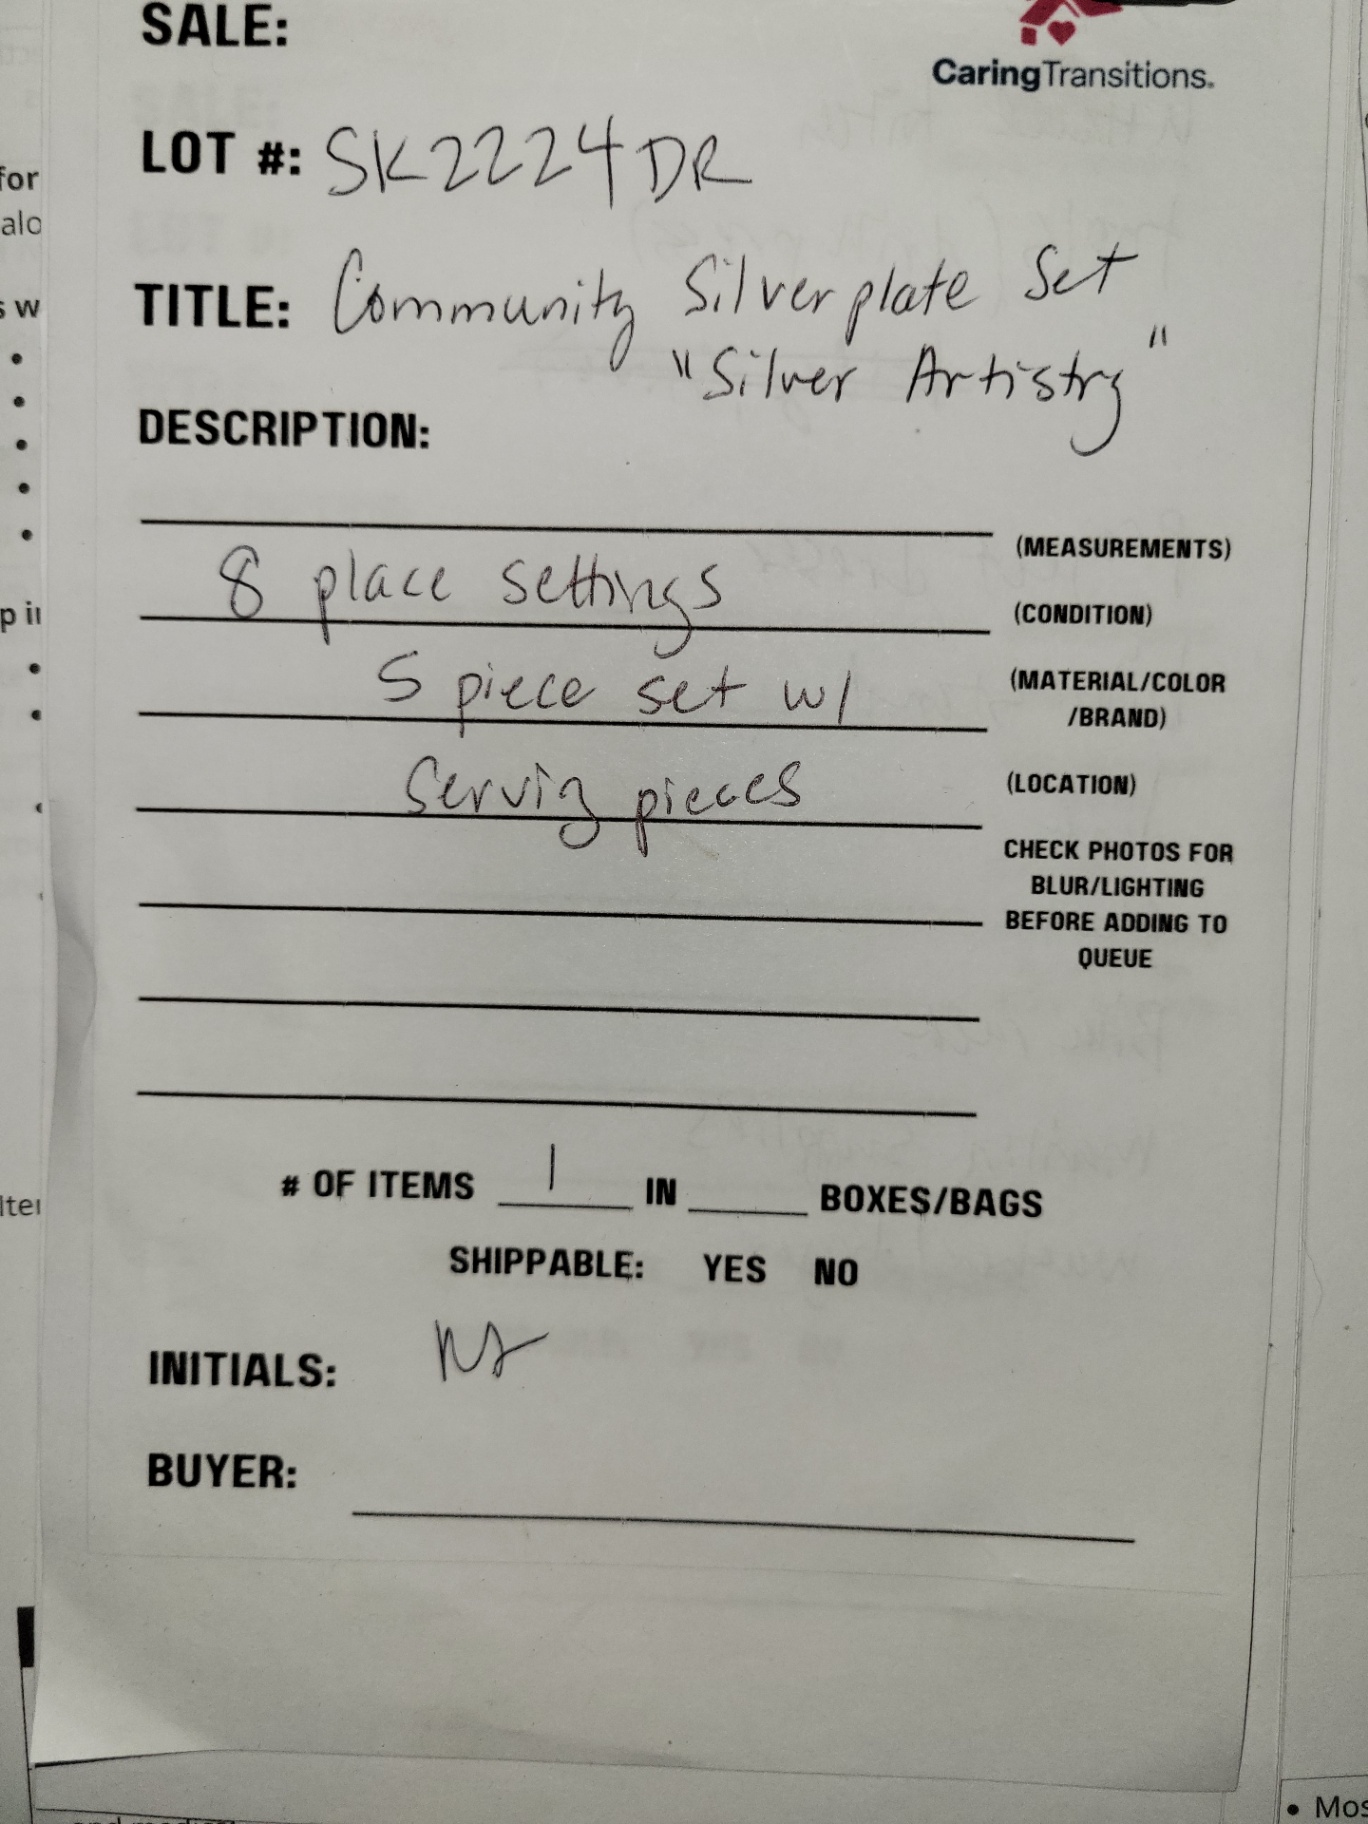 SALE:
CaringTransitions.
LOT #: SK2224DR
TITLE: Community Silverplate Set
"Silver Artistry"
DESCRIPTION:
(MEASUREMENTS)
8 place settings
(CONDITION)
5 piece set w/
(MATERIAL/COLOR
/BRAND)
Serving pieces
(LOCATION)
CHECK PHOTOS FOR
BLUR/LIGHTING
BEFORE ADDING TO
QUEUE
# OF ITEMS 1 IN BOXES/BAGS
SHIPPABLE: YES NO
INITIALS:
BUYER:
for
alo
s w
p i
• Mos